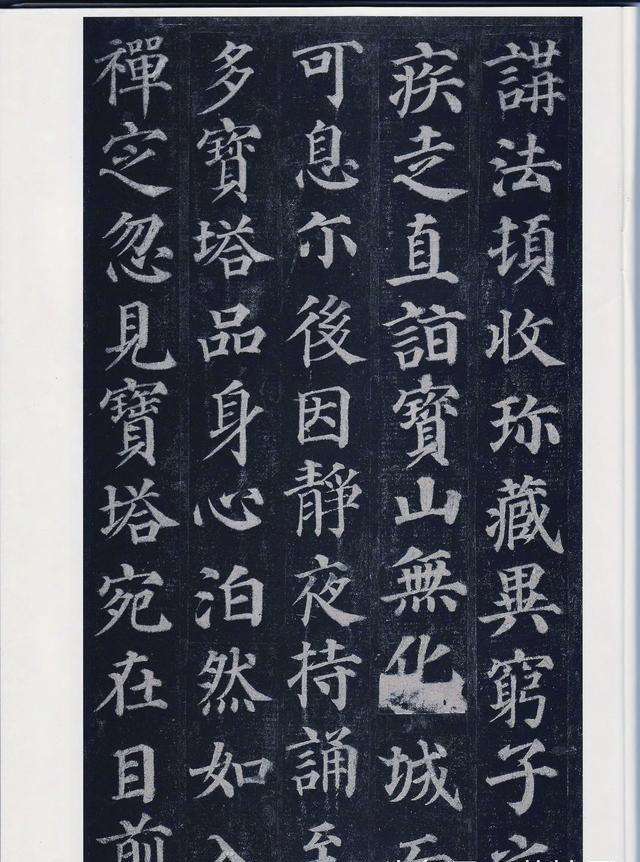 講法頓收珎藏異窮子
疾走直詣寶山無化城
可息尒後因靜夜持誦至
多寶塔品身心泊然如入
禪定忽見寶塔宛在目前